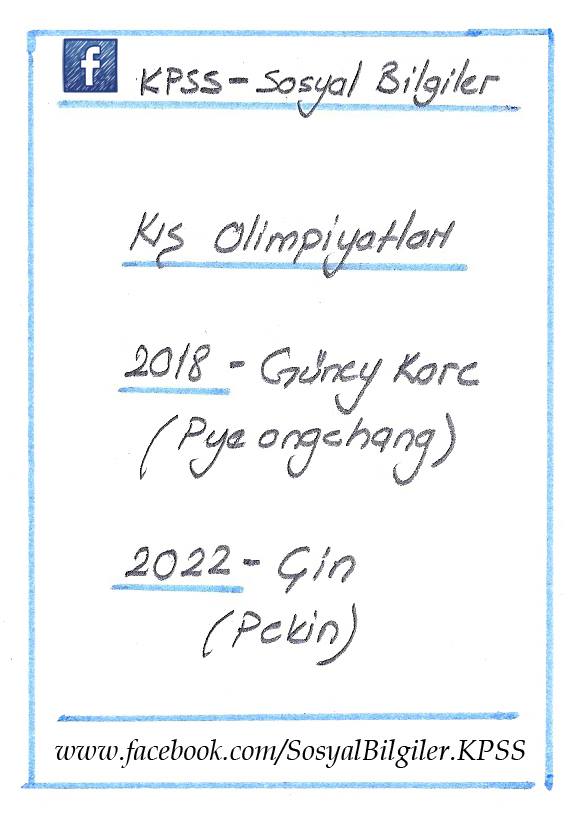 f KPSS - Sosyal Bilgiler
Kış Olimpiyatları
2018 - Güney Kore
(Pyeongchang)
2022 - Çin
(Pekin)
www.facebook.com/SosyalBilgiler.KPSS